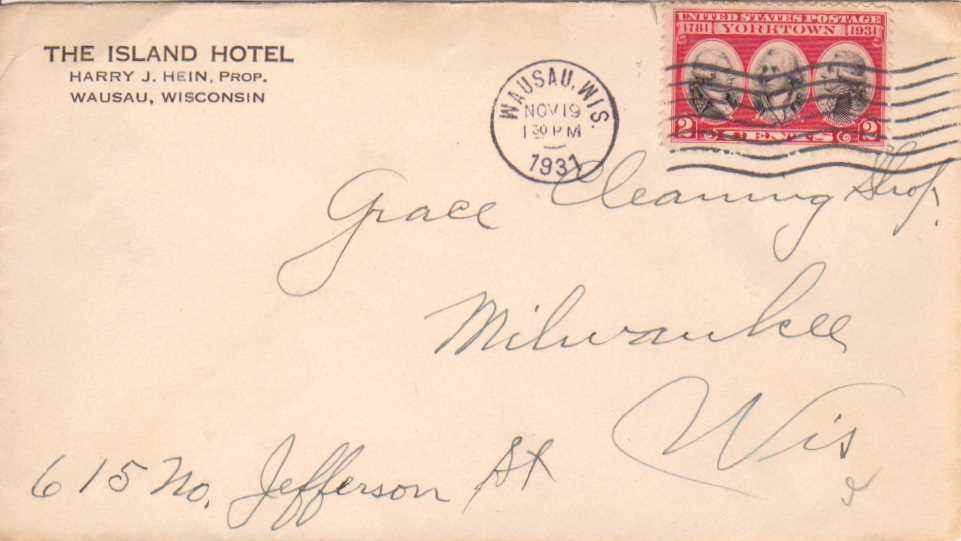 THE ISLAND HOTEL
HARRY J. HEIN, PROP.
WAUSAU, WISCONSIN
WAUSAU, WIS.
NOV 19
1 30 PM
1931
UNITED STATES POSTAGE
1781 YORKTOWN 1931
2 CENTS 2
Grace Cleaning Shop.
Milwaukee
Wis
615 No. Jefferson St